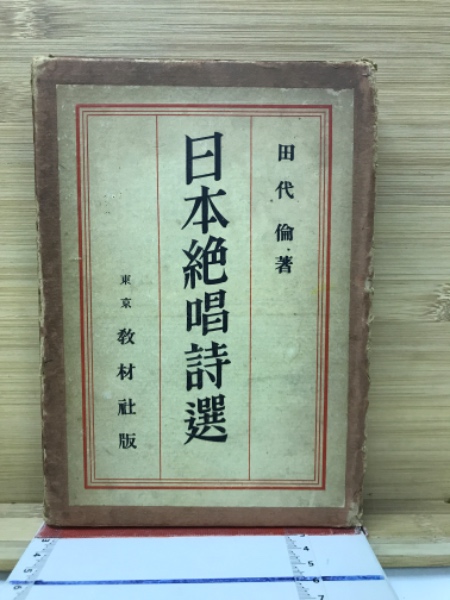 田代倫著
日本絶唱詩選
東京 教材社版